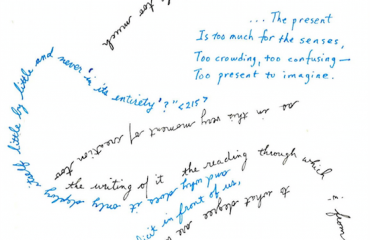 too much
... The present
Is too much for the senses,
Too crowding, too confusing—
Too present to imagine.
and why does it only display itself little by little and never in its entirety?" <215>
so in this very moment of creation too
the writing of it the reading through which
to what degree are
it in front of us,
from